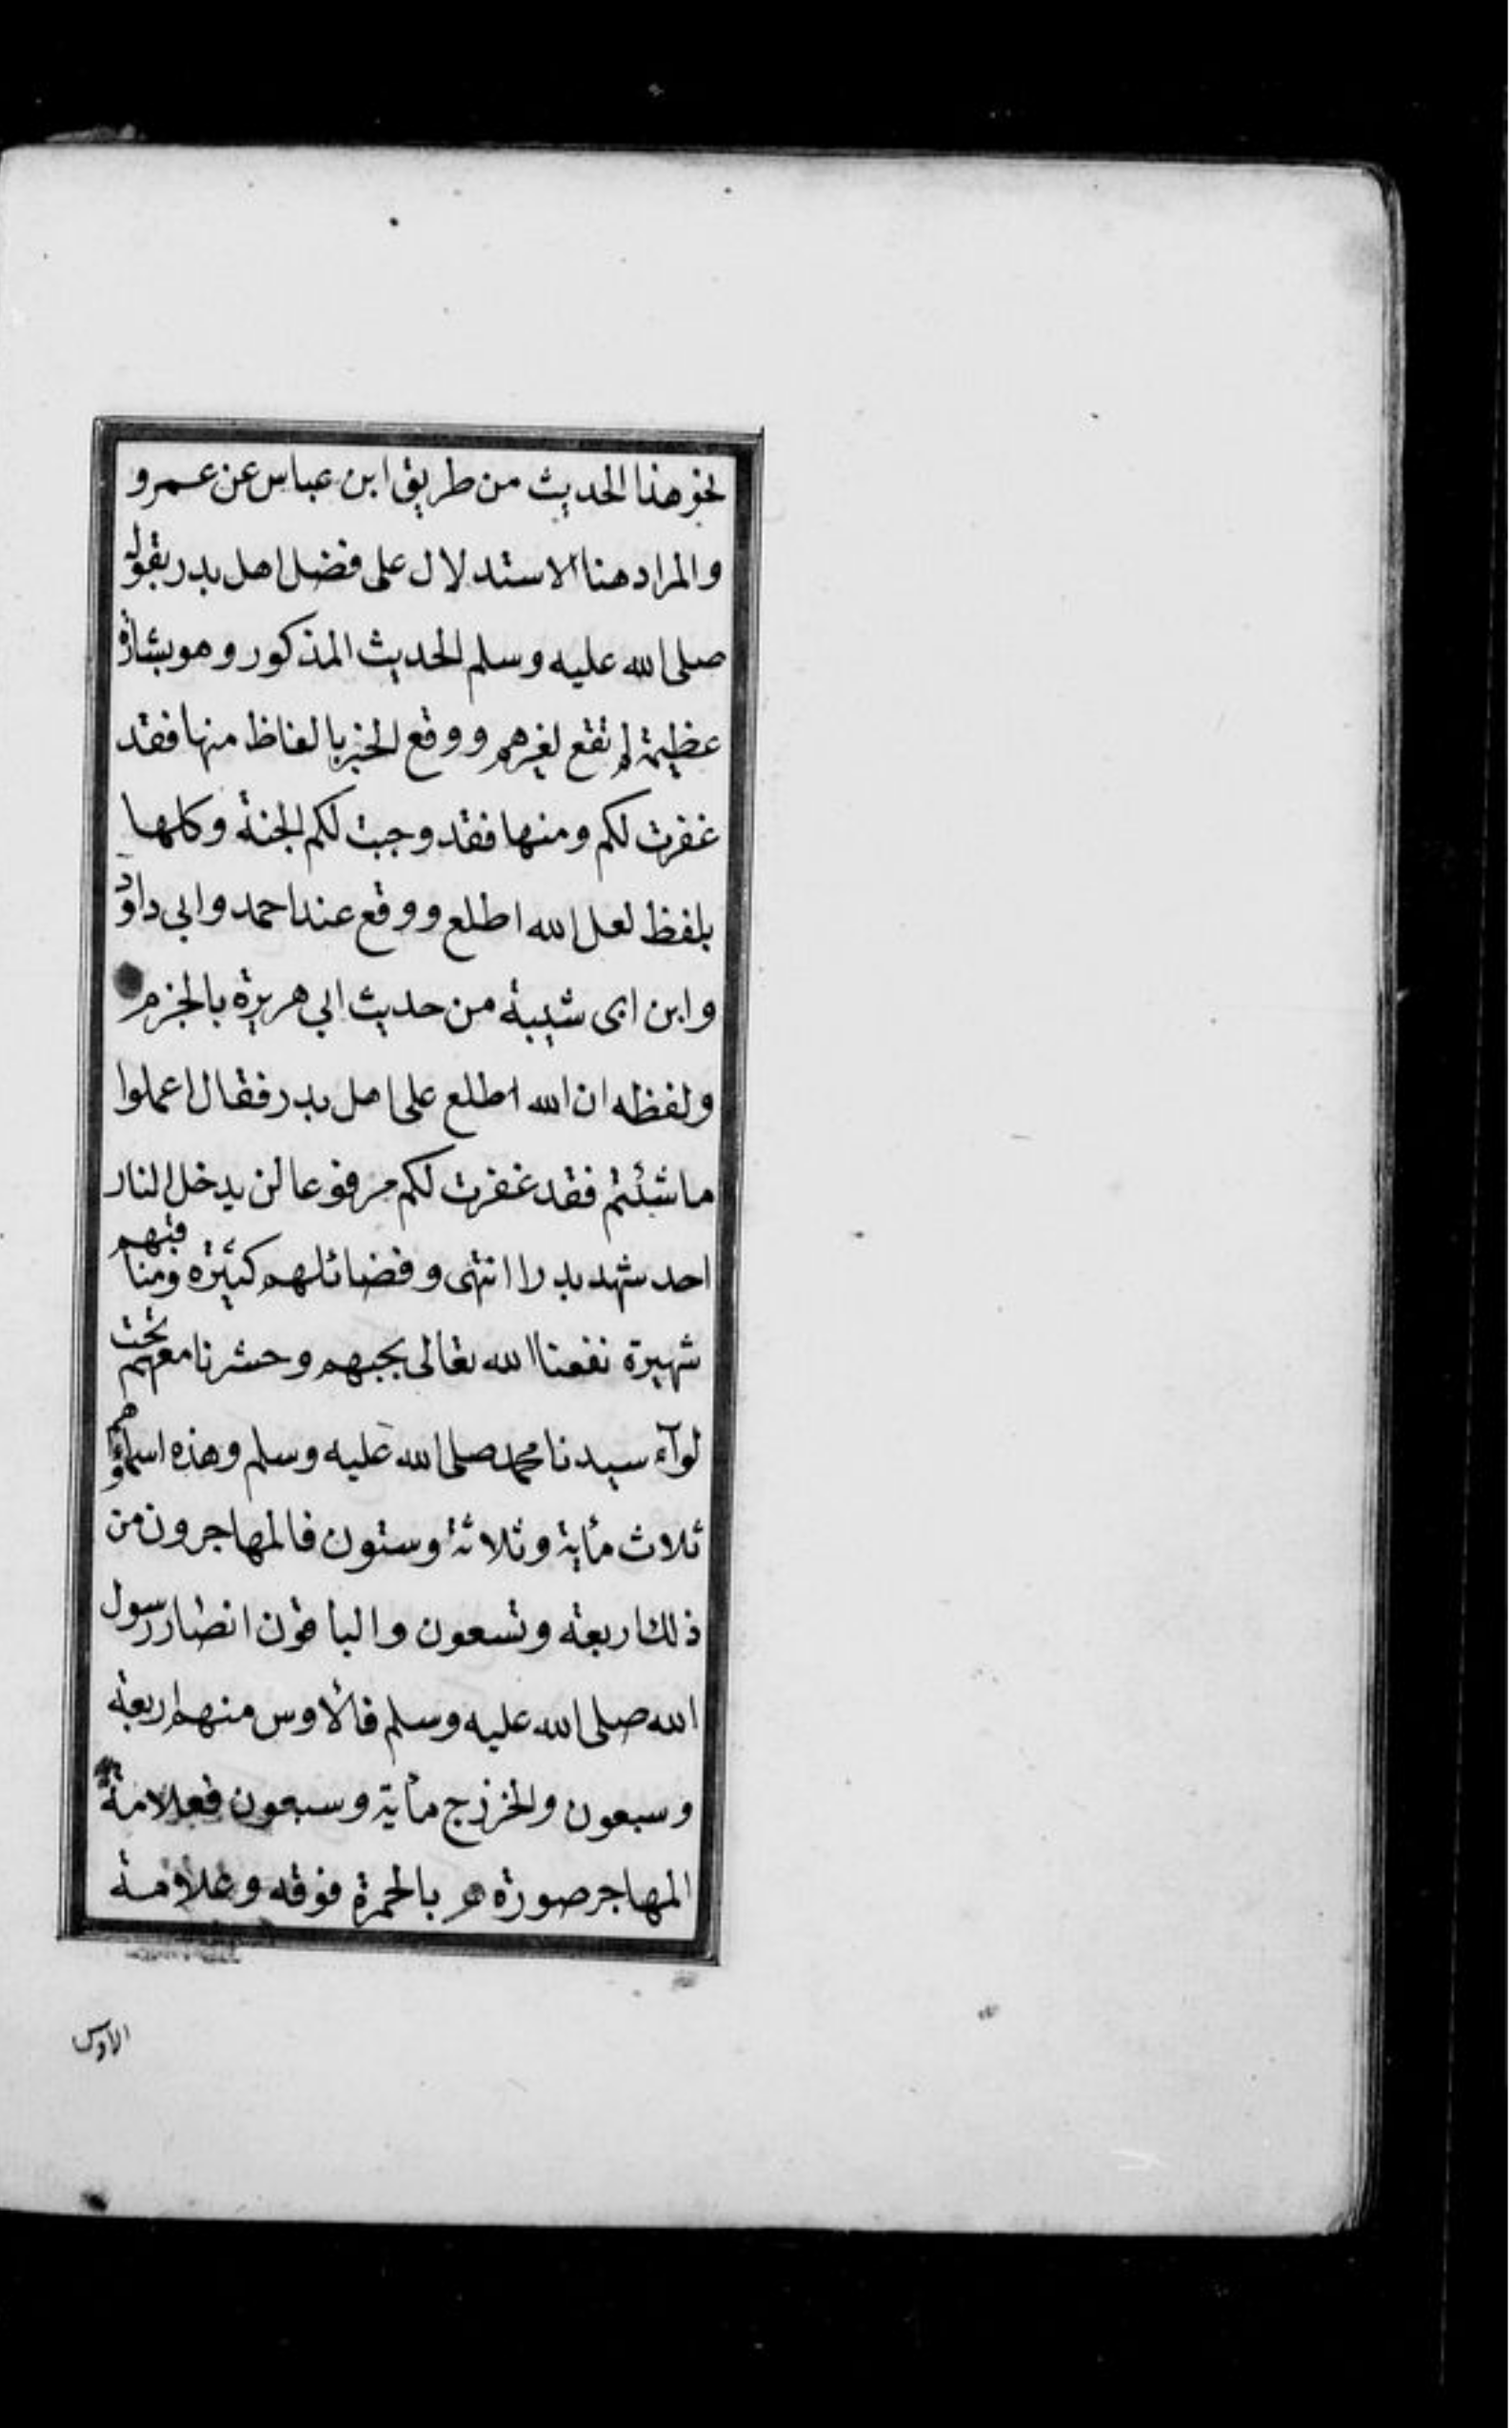 نحو هذا الحديث من طريق ابن عباس عن عمرو
والمراد هنا الاستدلال على فضل اهل بدر بقوله
صلى الله عليه وسلم الحديث المذكور وهو بشارة
عظيمة لم تقع لغيرهم ووقع الخبر بالفاظ منها فقد
غفرت لكم ومنها فقد وجبت لكم الجنة وكلها
بلفظ لعل الله اطلع ووقع عند احمد وابي داود
وابن ابى شيبة من حديث ابي هريرة بالجزم
ولفظه ان الله اطلع على اهل بدر فقال اعملوا
ما شئتم فقد غفرت لكم مرفوعا لن يدخل النار
احد شهد بدرا انتهى وفضائلهم كثيرة ومناقبهم
شهيرة نفعنا الله تعالى بحبهم وحشرنا معهم تحت
لوآء سيدنا محمد صلى الله عليه وسلم وهذه اسماؤهم
ثلاث مأية وثلاثة وستون فالمهاجرون من
ذلك اربعة وتسعون والباقون انصار رسول
الله صلى الله عليه وسلم فالأوس منهم اربعة
وسبعون والخزرج مأية وسبعون فعلامة
المهاجر صورة هر بالحمرة فوقه وعلامة
الاوس